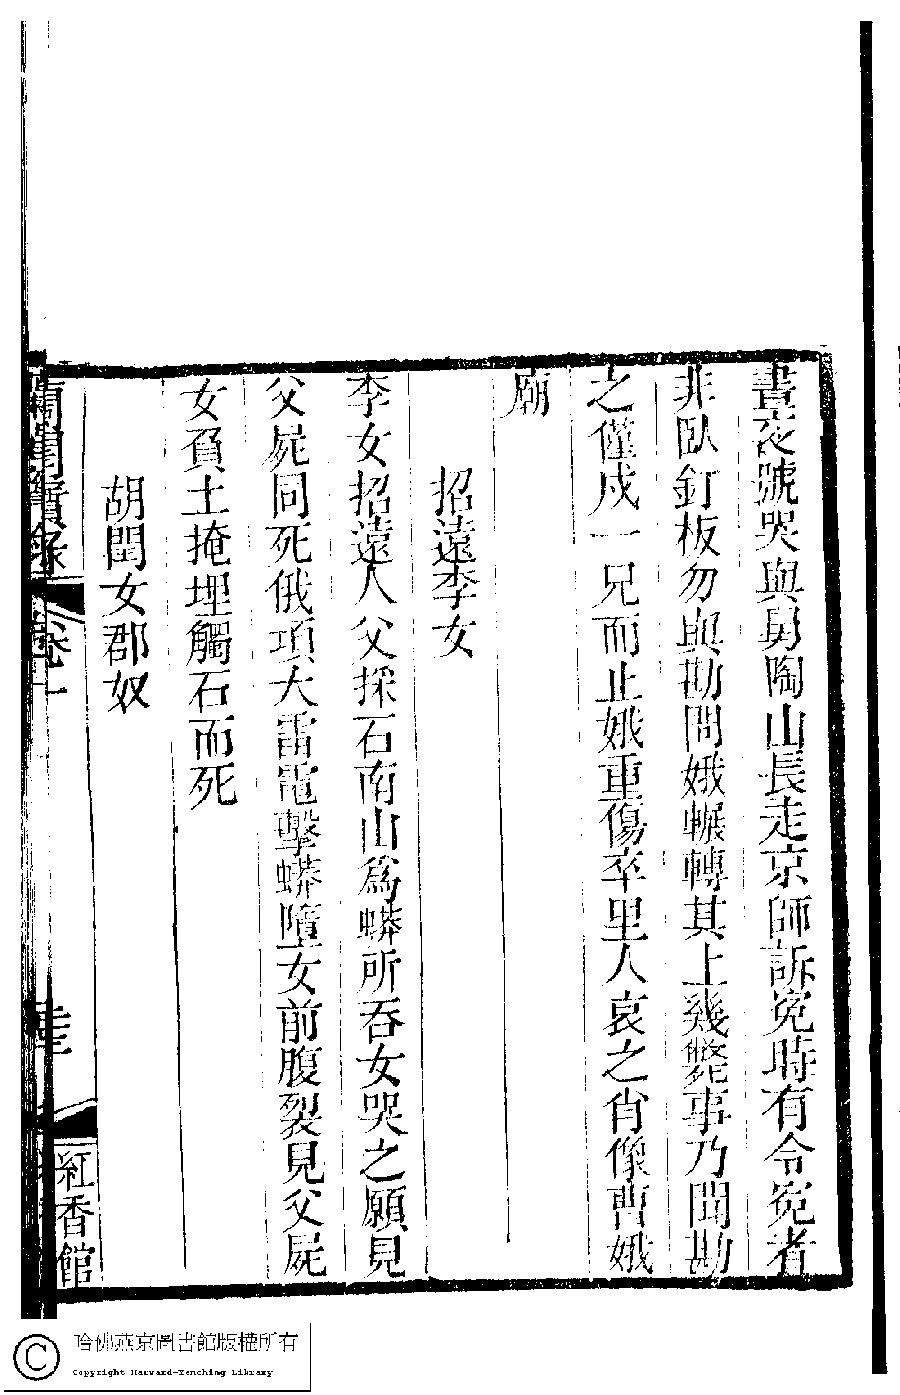 晝夜號哭與舅陶山長走京師訴寃時有令寃者
非臥釘板勿與勘問娥輾轉其上幾斃事乃聞勘
之僅戍一兄而止娥重傷卒里人哀之肖像曹娥
廟
招遠李女
李女招遠人父採石南山爲蟒所吞女哭之願見
父屍同死俄頃大雷電擊蟒墮女前腹裂見父屍
女負土掩埋觸石而死
胡閏女郡奴
蘭閨寶錄
卷一
紅香館
哈佛燕京圖書館版權所有
Copyright Harvard-Yenching Library